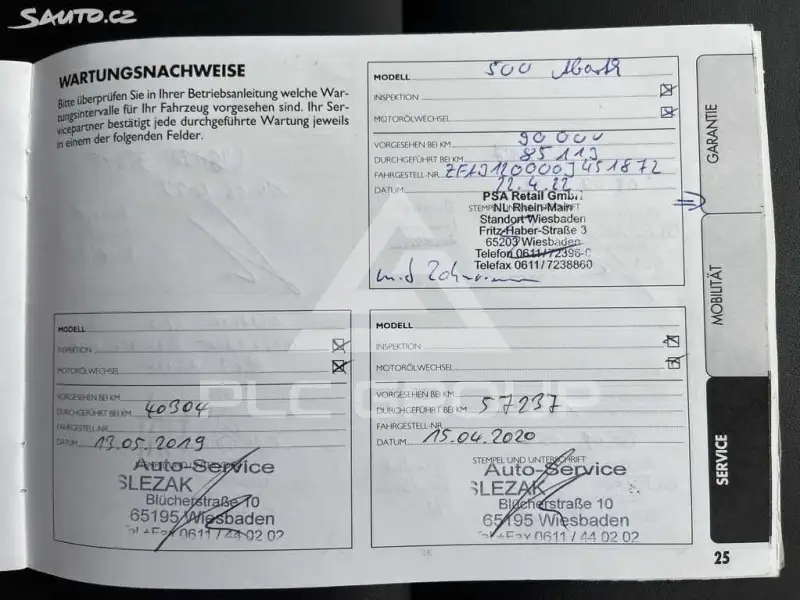 SAUTO.CZ
WARTUNGSNACHWEISE
Bitte überprüfen Sie in Ihrer Betriebsanleitung welche War-
tungsintervalle für Ihr Fahrzeug vorgesehen sind. Ihr Ser-
vicepartner bestätigt jede durchgeführte Wartung jeweils
in einem der folgenden Felder.
MODELL 500 Abarth
INSPEKTION
MOTORÖLWECHSEL
VORGESEHEN BEI KM 90000
DURCHGEFÜHRT BEI KM
FAHRGESTELL-NR.
DATUM 22.4.22
PSA Retail GmbH
STEMPEL UND UNTERSCHRIFT
NL Rhein-Main
Standort Wiesbaden
Fritz-Haber-Straße 3
65203 Wiesbaden
Telefon 0611/72396-0
Telefax 0611/7238860
GARANTIE
MOBILITÄT
SERVICE
PLC GROUP
MODELL
INSPEKTION
MOTORÖLWECHSEL
VORGESEHEN BEI KM
DURCHGEFÜHRT BEI KM 40304
FAHRGESTELL-NR.
DATUM 13.05.2019
Auto-Service
SLEZAK
Blücherstraße 10
65195 Wiesbaden
Tel.+Fax 0611/44 02 02
MODELL
INSPEKTION
MOTORÖLWECHSEL
VORGESEHEN BEI KM
DURCHGEFÜHRT BEI KM 57237
FAHRGESTELL-NR.
DATUM 15.04.2020
STEMPEL UND UNTERSCHRIFT
Auto-Service
SLEZAK
Blücherstraße 10
65195 Wiesbaden
Tel.+Fax 0611/44 02 02
25